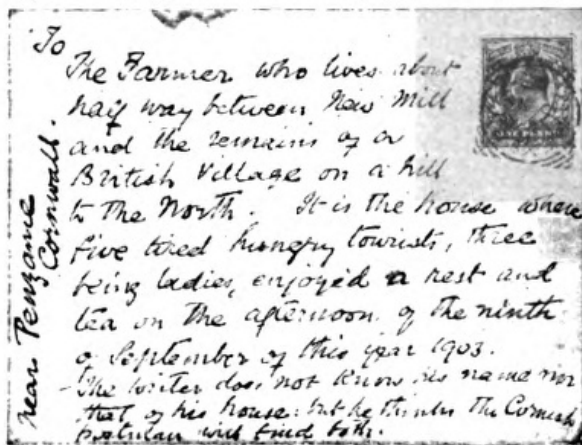 To
The Farmer who lives about
half way between New Mill
and the remains of a
British Village on a hill
to the North. It is the house where
five tired hungry tourists, three
being ladies, enjoyed a rest and
tea on the afternoon of the ninth
of September of this year 1903.
- The writer does not know his name nor
that of his house: but he thinks the Cornish
Postman will find both.
near Penzance
Cornwall.
ONE PENNY